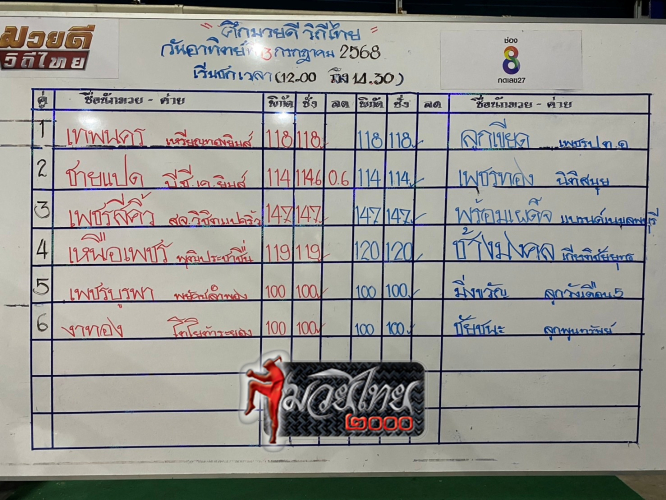 มวยดี
วิถีไทย
"ศึกมวยดี วิถีไทย"
วันอาทิตย์ที่ 13 กรกฎาคม 2568
เริ่มชกเวลา (12.00 ถึง 14.30)
ช่อง
8
กดเลข27
คู่ ชื่อนักมวย - ค่าย พิกัด ชั่ง ลด พิกัด ชั่ง ลด ชื่อนักมวย - ค่าย
1 เทพนคร เหรียญทองยิมส์ 118 118 118 118 ลูกเขียด เพชรปตอ
2 ชายแปด บี.ซี.เค.ยิมส์ 114 114.6 0.6 114 114 เพชรทอง นิติสมุย
3 เพชรสี่คิ้ว 147 147 147 147 พร้อมเผด็จ
4 เหนือเพชร พุฒิประชาชื่น 119 119 120 120 ช้างมงคล เกียรติชัยยุทธ
5 เพชรบูรพา 100 100 100 100 มิ่งขวัญ ลูกวังเดือน5
6 งาทอง โตโยต้าระยอง 100 100 100 100 ชัยชนะ ลูกพูนทรัพย์
มวยไทย
๒๐๐๐